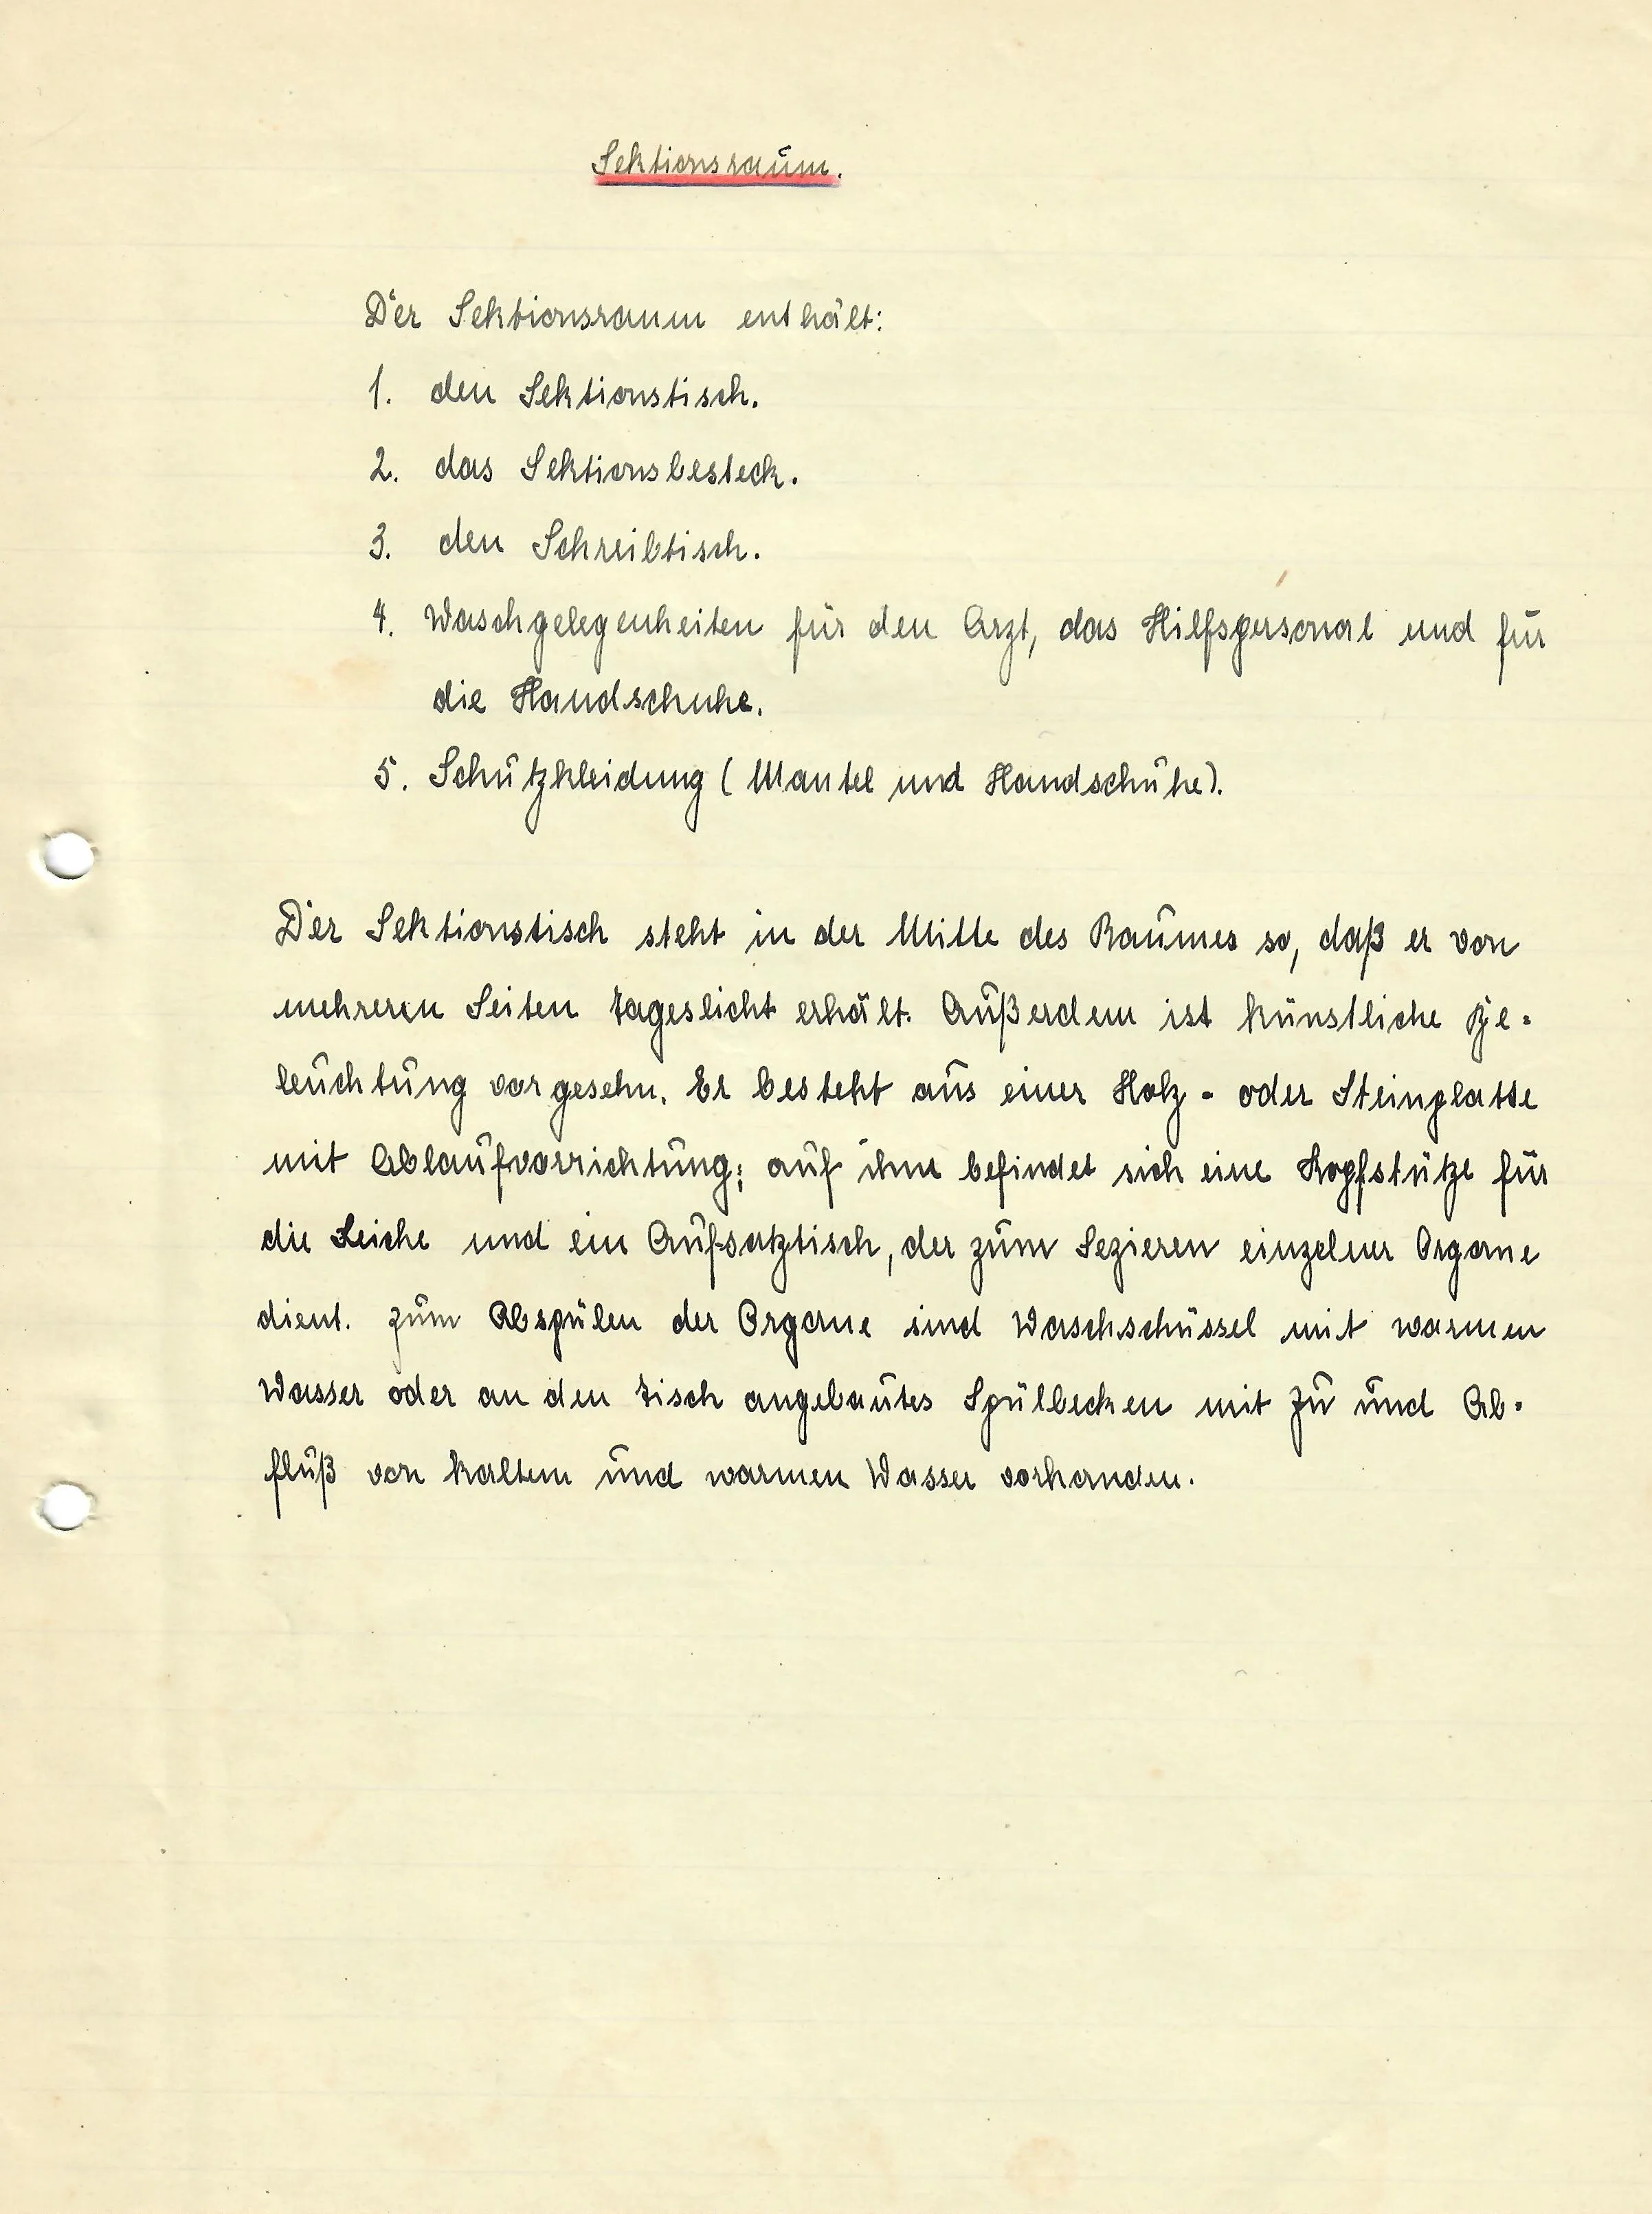 Sektionsraum.
Der Sektionsraum enthält:
1. den Sektionstisch.
2. das Sektionsbesteck.
3. den Schreibtisch.
4. Waschgelegenheiten für den Arzt, das Hilfspersonal und für
die Handschuhe.
5. Schutzkleidung (Mantel und Handschuhe).
Der Sektionstisch steht in der Mitte des Raumes so, daß er von
mehreren Seiten Tageslicht erhält. Außerdem ist künstliche Be-
leuchtung vorgesehn. Er besteht aus einer Holz- oder Steinplatte
mit Ablaufvorrichtung; auf ihm befindet sich eine Kopfstütze für
die Leiche und ein Aufsatztisch, der zum Sezieren einzelner Organe
dient. Zum Abspülen der Organe sind Waschschüssel mit warmen
Wasser oder an den Tisch angebautes Spülbecken mit Zu und Ab-
fluß von kaltem und warmen Wasser vorhanden.